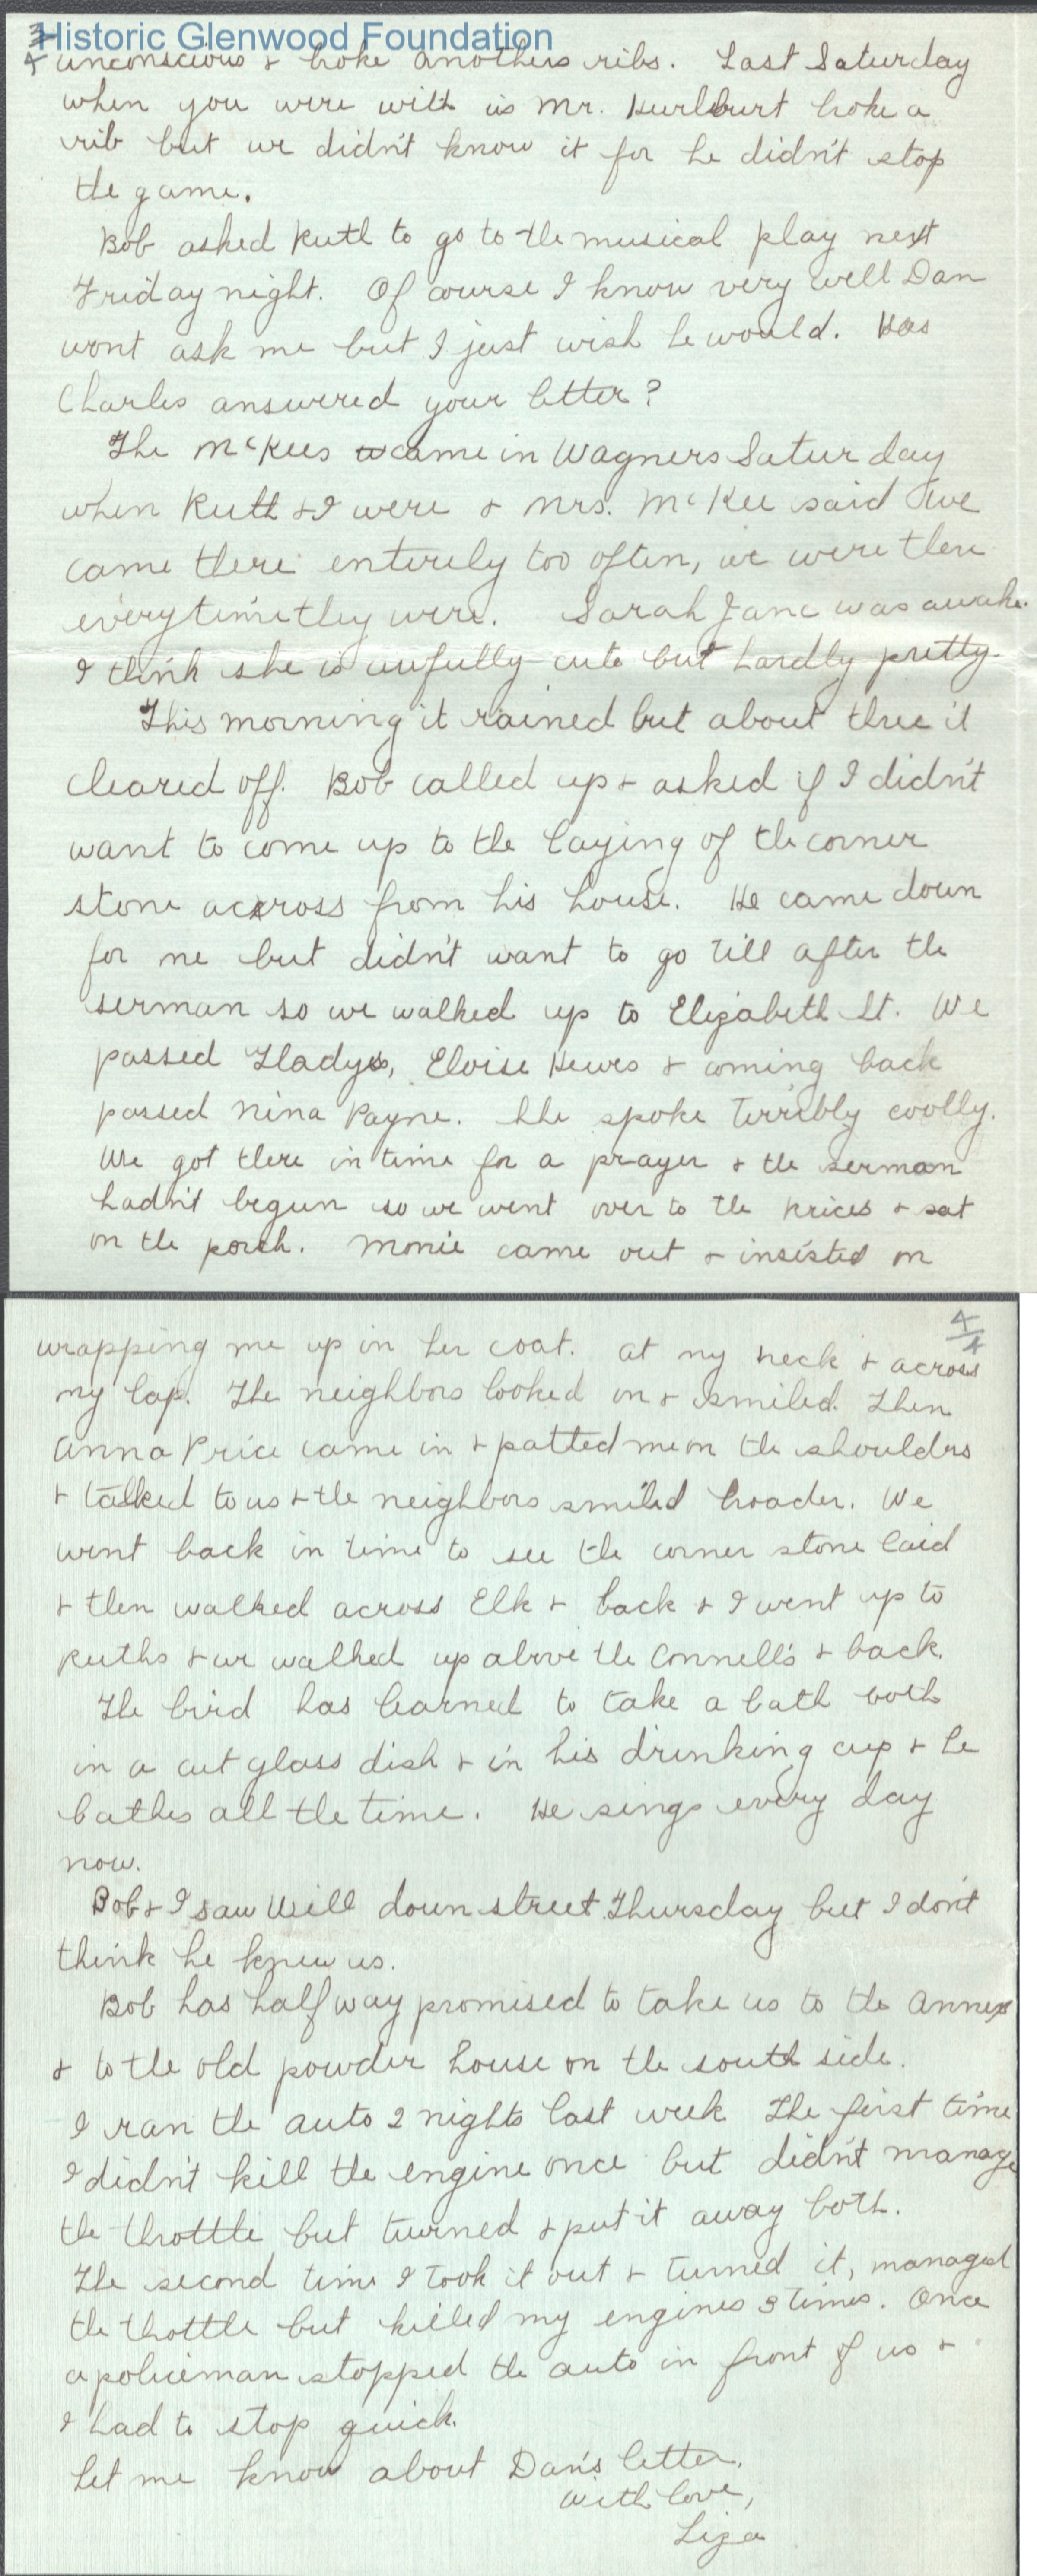 Historic Glenwood Foundation
3/4
unconscious & broke anothers ribs. Last Saturday
when you were with us Mr. Hurlburt broke a
rib but we didn't know it for he didn't stop
the game.
Bob asked Ruth to go to the musical play next
Friday night. Of course I know very well Dan
wont ask me but I just wish he would. Has
Charles answered your letter?
The McKees came in Wagners Saturday
when Ruth & I were & Mrs. McKee said we
came there entirely too often, we were there
everytime they were. Sarah Jane was awake.
I think she is awfully cute but hardly pretty.
This morning it rained but about three it
cleared off. Bob called up & asked if I didn't
want to come up to the laying of the corner
stone across from his house. He came down
for me but didn't want to go till after the
serman so we walked up to Elizabeth St. We
passed Gladys, Eloise Hewes & coming back
passed Nina Payne. She spoke terribly coolly.
We got there in time for a prayer & the serman
hadn't begun so we went over to the Prices & sat
on the porch. Monie came out & insisted on
4/4
wrapping me up in her coat. At my neck & across
my lap. The neighbors looked on & smiled. Then
Anna Price came in & patted me on the shoulders
& talked to us & the neighbors smiled broader. We
went back in time to see the corner stone laid
& then walked across Elk & back & I went up to
Ruths & we walked up above the Connell's & back.
The bird has learned to take a bath both
in a cut glass dish & in his drinking cup & he
bathes all the time. He sings every day
now.
Bob & I saw Will down street Thursday but I don't
think he knew us.
Bob has half way promised to take us to the Annex
& to the old powder house on the south side.
I ran the auto 2 nights last week. The first time
I didn't kill the engine once but didn't manage
the throttle but turned & put it away both.
The second time I took it out & turned it, managed
the thottle but killed my engines 3 times. Once
a policeman stopped the auto in front of us &
I had to stop quick.
Let me know about Dan's letter.
With love,
Liza